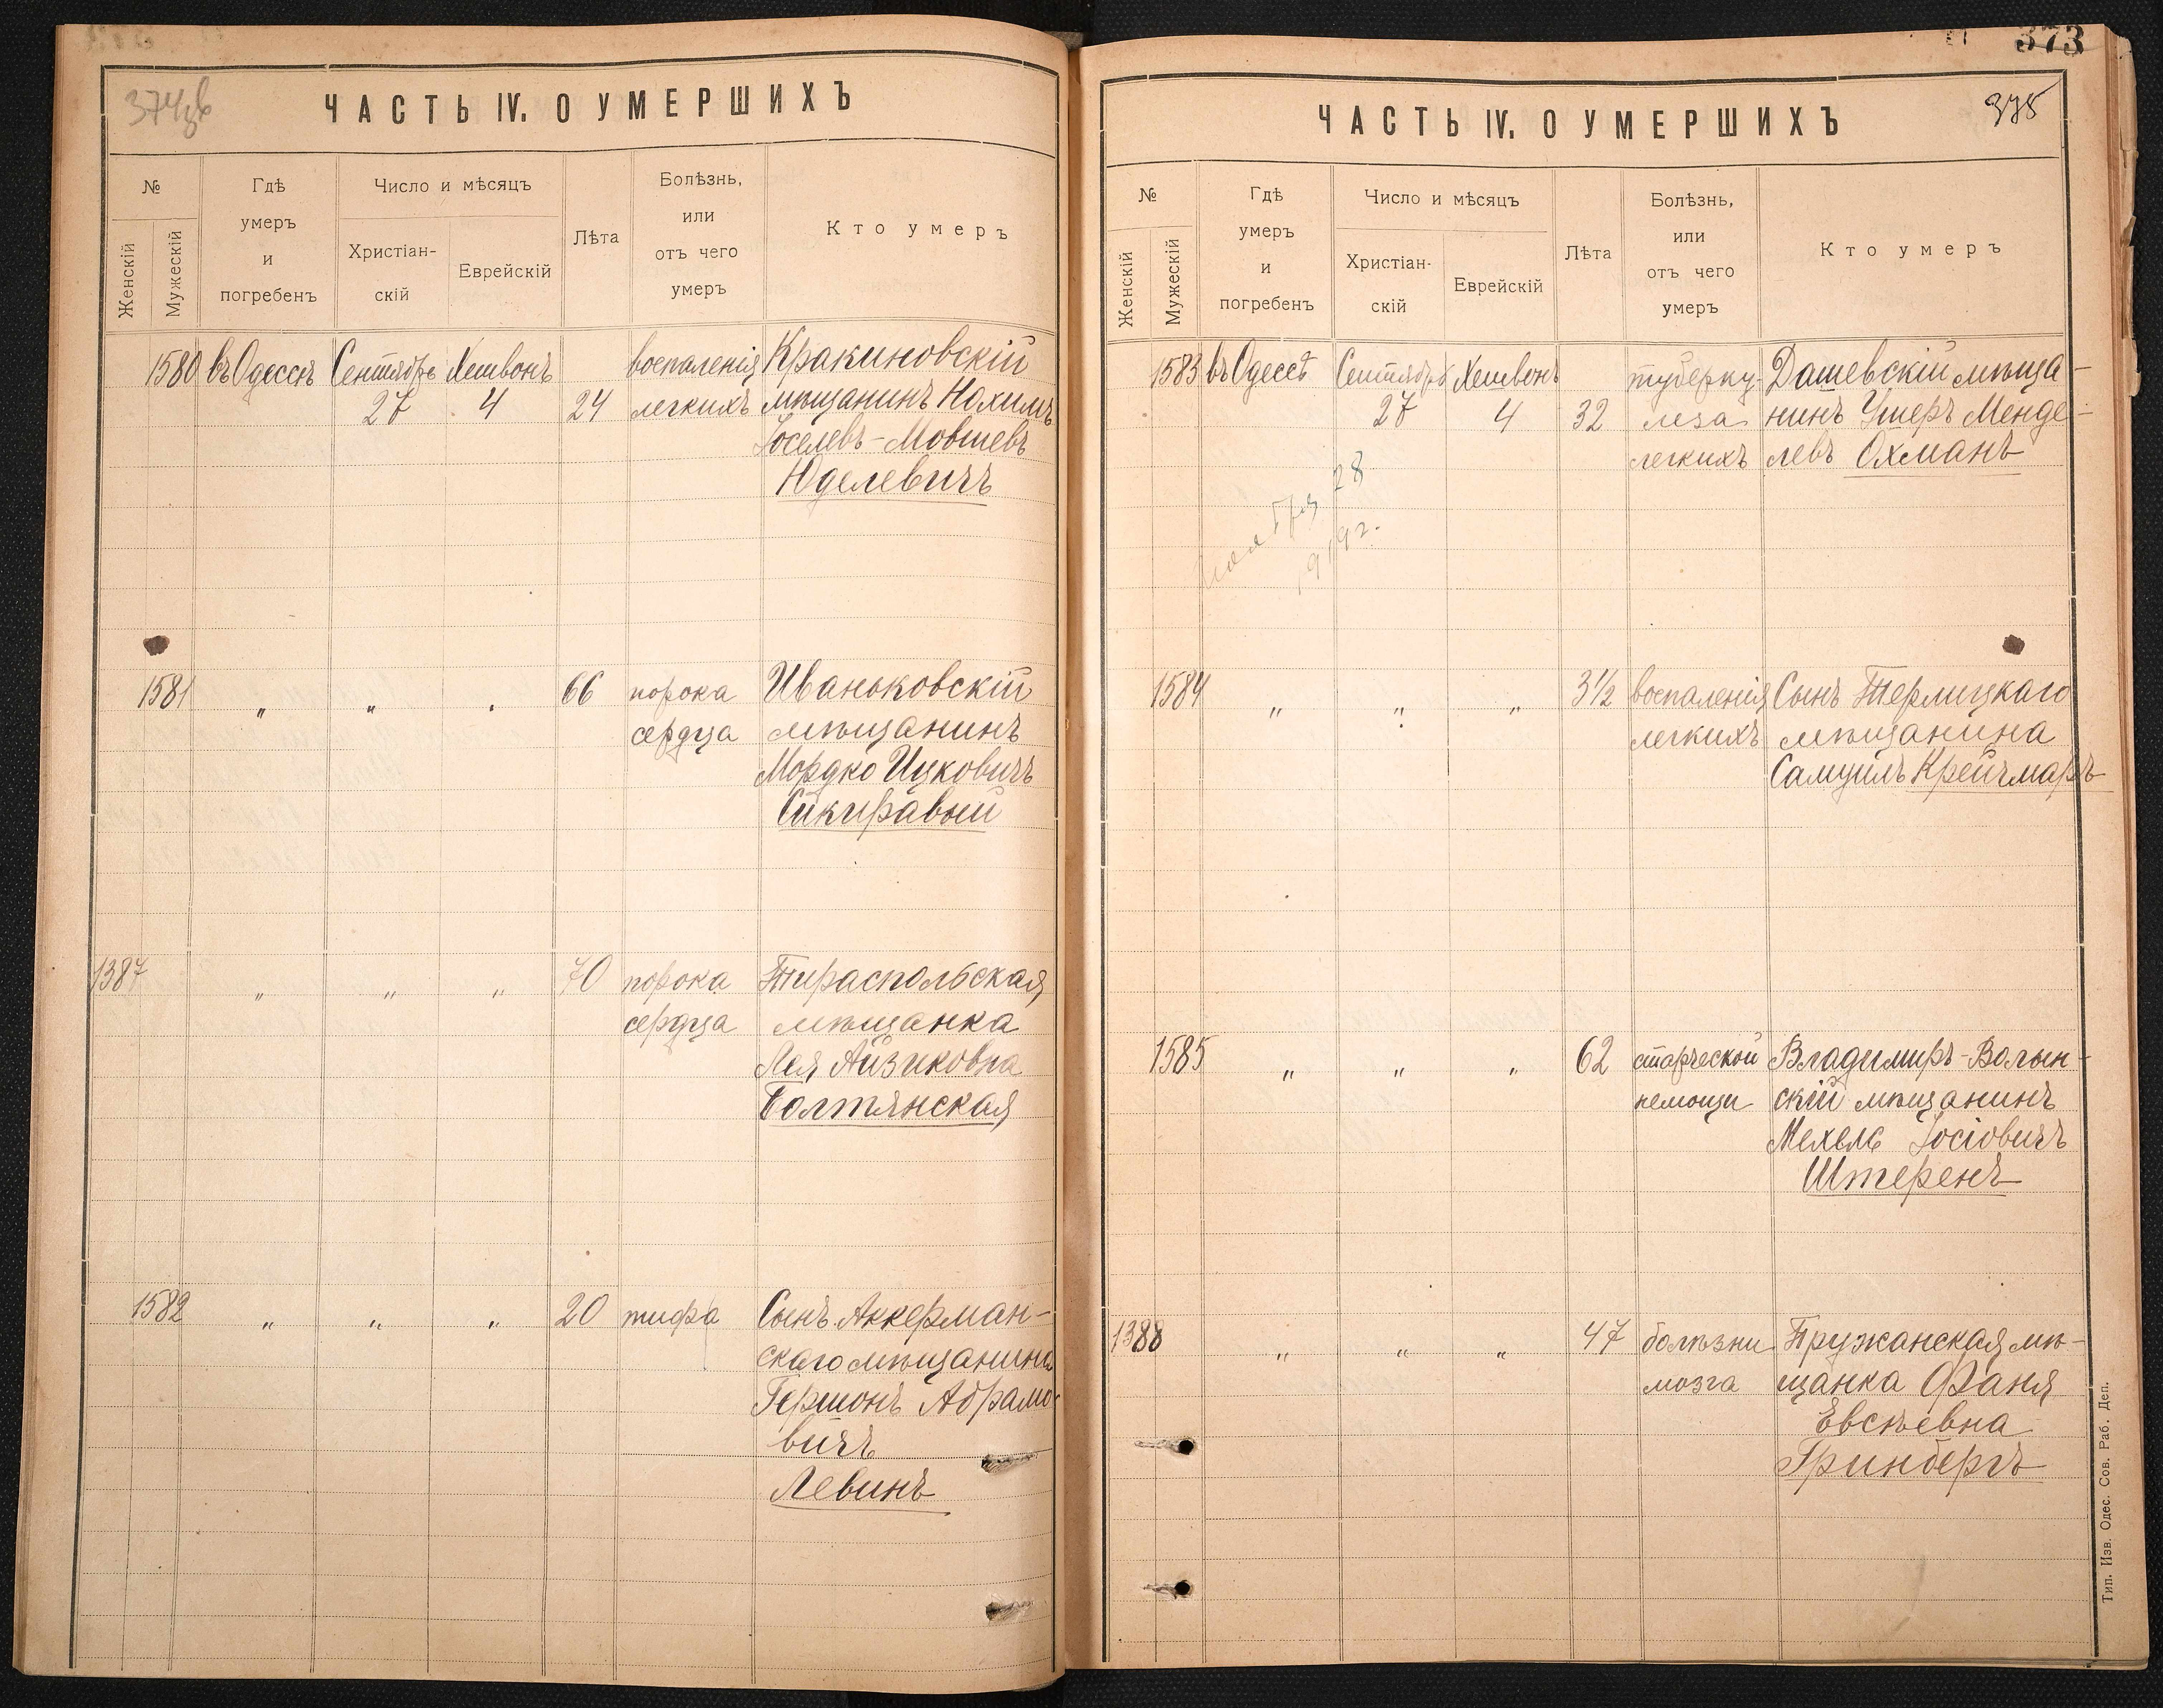 374об
ЧАСТЬ IV. О УМЕРШИХЪ
№
Женскій
Мужескій
Гдѣ
умеръ
и
погребенъ
Число и мѣсяцъ
Христіан-
скій
Еврейскій
Лѣта
Болѣзнь,
или
отъ чего
умеръ
Кто умеръ
1580 въ Одессѣ Сентябрь Хешвонъ воспаленія Кракиновскій
27 4 24 легкихъ мѣщанинъ Нохимъ
Іоселевъ-Мовшевъ
Юделевичъ
1581 „ „ „ 66 порока Иваньковскій
сердца мѣщанинъ
Мордко Ицковичъ
Сикиравый
1387 „ „ „ 70 порока Тираспольская
сердца мѣщанка
Лея Айзиковна
Болтянская
1582 „ „ „ 20 тифа Сынъ Аккерман-
скаго мѣщанина
Гершонъ Абрамо
вичъ
Левинъ
373
375
ЧАСТЬ IV. О УМЕРШИХЪ
№
Женскій
Мужескій
Гдѣ
умеръ
и
погребенъ
Число и мѣсяцъ
Христіан-
скій
Еврейскій
Лѣта
Болѣзнь,
или
отъ чего
умеръ
Кто умеръ
1583 въ Одессѣ Сентябрь Хешвонъ туберку- Дашевскій мѣща-
27 4 32 леза нинъ Ушеръ Менде-
легкихъ левъ Охманъ
28
1919г.
1584 „ „ „ 3½ воспаленія Сынъ Терлицкаго
легкихъ мѣщанина
Самуилъ Крейчмаръ
1585 „ „ „ 62 старческой Владимиръ-Волын-
немощи скій мѣщанинъ
Мехель Іосіовичъ
Штеренъ
1388 „ „ „ 47 болѣзни Пружанская мѣ-
мозга щанка Фаня
Евсѣевна
Гринбергъ
Тип. Изв. Одес. Сов. Раб. Деп.